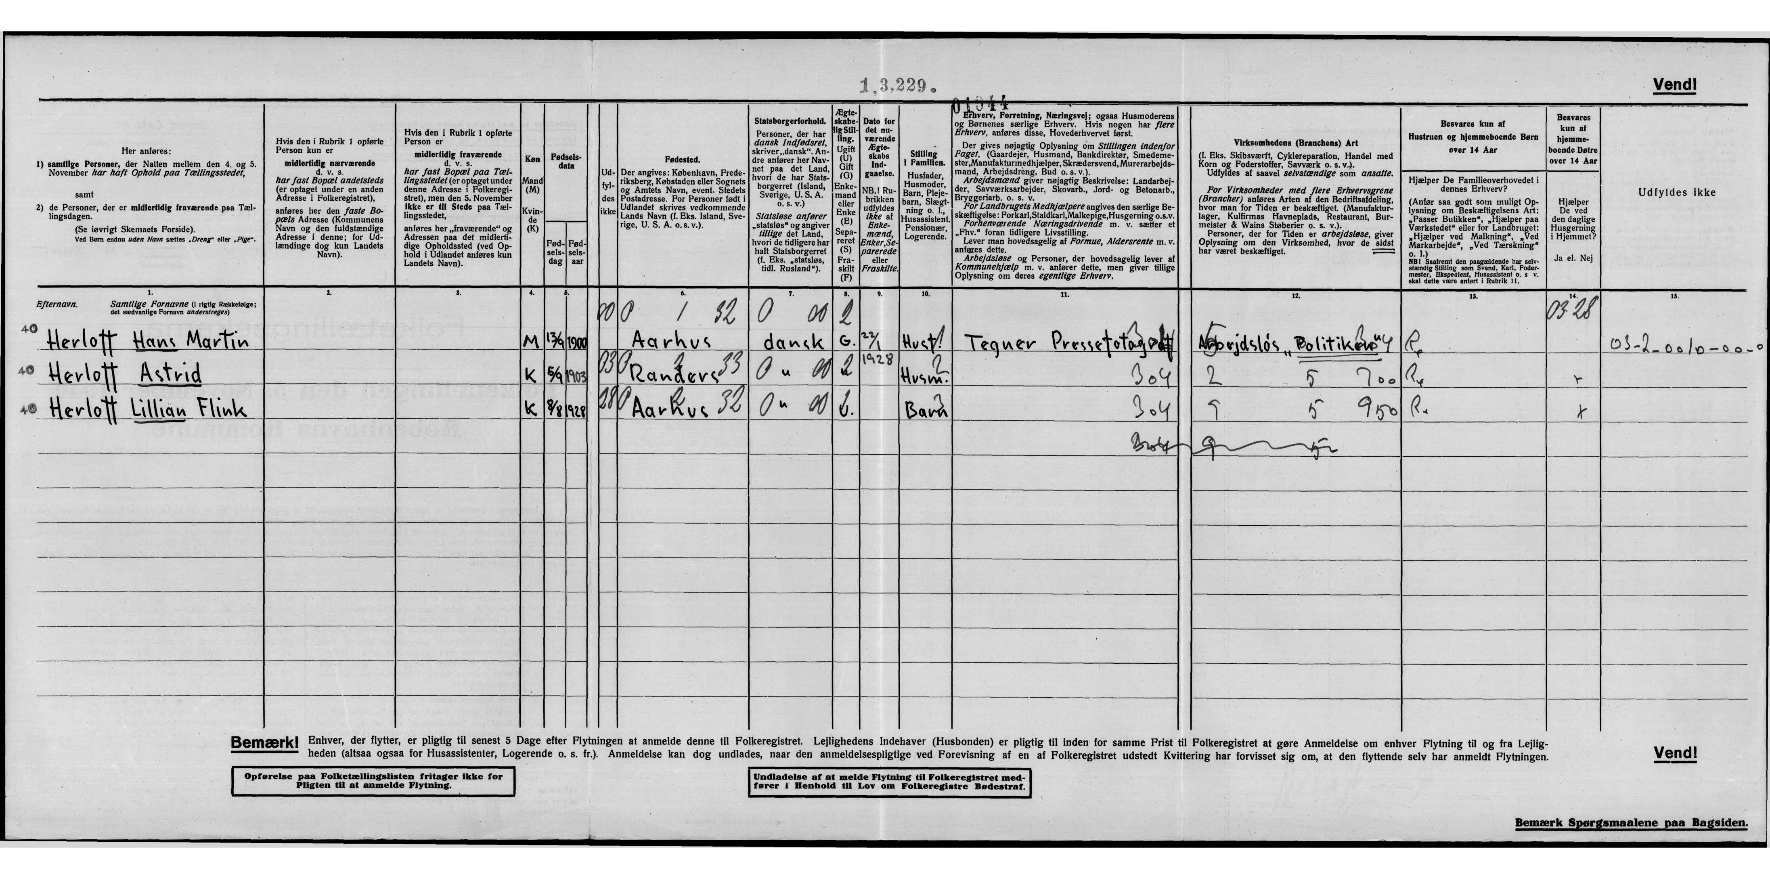 1.3.229.
Vend!
01944
Her anføres:
1) samtlige Personer, der Natten mellem den 4. og 5.
November har haft Ophold paa Tællingsstedet,
samt
2) de Personer, der er midlertidig fraværende paa Tæl-
lingsdagen.
(Se iøvrigt Skemaets Forside).
Ved Børn endnu uden Navn sættes „Dreng“ eller „Pige“.
Hvis den i Rubrik 1 opførte
Person kun er
midlertidig nærværende
d. v. s.
har fast Bopæl andetsteds
(er optaget under en anden
Adresse i Folkeregistret),
anføres her den faste Bo-
pæls Adresse (Kommunens
Navn og den fuldstændige
Adresse i denne; for Ud-
lændinge dog kun Landets
Navn).
Hvis den i Rubrik 1 opførte
Person er
midlertidig fraværende
d. v. s.
har fast Bopæl paa Tæl-
lingsstedet (er optaget under
denne Adresse i Folkeregi-
stret), men den 5. November
ikke er til Stede paa Tæl-
lingsstedet,
anføres her „fraværende“ og
Adressen paa det midlerti-
dige Opholdssted (ved Op-
hold i Udlandet anføres kun
Landets Navn).
Køn
Mand
(M)
Kvin-
de
(K)
Fødsels-
data
Fød-
sels-
dag
Fød-
sels-
aar
Ud-
fyl-
des
ikke
Fødested.
Der angives: København, Frede-
riksberg, Købstaden eller Sognets
og Amtets Navn, event. Stedets
Postadresse. For Personer født i
Udlandet skrives vedkommende
Lands Navn (f. Eks. Island, Sve-
rige, U. S. A. o. s. v.).
Statsborgerforhold.
Personer, der har
dansk Indfødsret,
skriver „dansk“. An-
dre anfører her Nav-
net paa det Land,
hvori de har Stats-
borgerret (Island,
Sverige, U. S. A.
o. s. v.)
Statsløse anfører
„statsløs“ og angiver
tillige det Land,
hvori de tidligere har
haft Statsborgerret
(f. Eks. „statsløs,
tidl. Rusland“).
Ægte-
skabe-
lig Stil-
ling.
Ugift
(U)
Gift
(G)
Enke-
mand
eller
Enke
(E)
Sepa-
reret
(S)
Fra-
skilt
(F)
Dato for
det nu-
værende
Ægte-
skabs
Ind-
gaaelse.
NB.! Ru-
brikken
udfyldes
ikke af
Enke-
mænd,
Enker, Se-
parerede
eller
Fraskilte.
Stilling
i Familien.
Husfader,
Husmoder,
Barn, Pleje-
barn, Slægt-
ning o. l.,
Husassistent,
Pensionær,
Logerende.
Erhverv, Forretning, Næringsvej; ogsaa Husmoderens
og Børnenes særlige Erhverv. Hvis nogen har flere
Erhverv, anføres disse, Hovederhvervet først.
Der gives nøjagtig Oplysning om Stillingen indenfor
Faget. (Gaardejer, Husmand, Bankdirektør, Smedeme-
ster, Manufakturmedhjælper, Skrædersvend, Murerarbejds-
mand, Arbejdsdreng, Bud o. s. v.).
Arbejdsmænd giver nøjagtig Beskrivelse: Landarbej-
der, Savværksarbejder, Skovarb., Jord- og Betonarb.,
Bryggeriarb. o. s. v.
For Landbrugets Medhjælpere angives den særlige Be-
skæftigelse: Forkarl, Staldkarl, Malkepige, Husgerning o.s.v.
Forhenværende Næringsdrivende m. v. sætter et
„Fhv.“ foran tidligere Livsstilling.
Lever man hovedsagelig af Formue, Aldersrente m. v.
anføres dette.
Arbejdsløse og Personer, der hovedsagelig lever af
Kommunehjælp m. v. anfører dette, men giver tillige
Oplysning om deres egentlige Erhverv.
Virksomhedens (Branchens) Art
(f. Eks. Skibsværft, Cyklereparation, Handel med
Korn og Foderstoffer, Savværk o. s. v.).
Udfyldes af saavel selvstændige som ansatte.
For Virksomheder med flere Erhvervsgrene
(Brancher) anføres Arten af den Bedriftsafdeling,
hvor man for Tiden er beskæftiget. (Manufaktur-
lager, Kulfirmas Havneplads, Restaurant, Bur-
meister & Wains Støberier o. s. v.).
Personer, der for Tiden er arbejdsløse, giver
Oplysning om den Virksomhed, hvor de sidst
har været beskæftiget.
Besvares kun af
Hustruen og hjemmeboende Børn
over 14 Aar
Hjælper De Familieoverhovedet i
dennes Erhverv?
(Anfør saa godt som muligt Op-
lysning om Beskæftigelsens Art:
„Passer Butikken“, „Hjælper paa
Værkstedet“ eller for Landbruget:
„Hjælper ved Malkning“, „Ved
Markarbejde“, „Ved Tærskning“
o. l.)
NB! Saafremt den paagældende har selv-
stændig Stilling som Svend, Karl, Foder-
mester, Ekspedient, Husassistent o. s. v.
skal dette være anført i Rubrik 11.
Besvares
kun af
hjemme-
boende Døtre
over 14 Aar
Hjælper
De ved
den daglige
Husgerning
i Hjemmet?
Ja el. Nej
Udfyldes ikke
1. 2. 3. 4. 5. 6. 7. 8. 9. 10. 11. 12. 13. 14. 15.
Efternavn. Samtlige Fornavne (i rigtig Rækkefølge;
det sædvanlige Fornavn understreges)
00 0 1 32 0 00 2 0328
40 Herloff Hans Martin M 13/9 1900 Aarhus dansk G. 22/1 1928 Husf. Tegner Pressefotograf Arbejdsløs „Politiken“ 03-2-0010-00-0
40 Herloff Astrid K 5/9 1903 030 Randers 33 0 " 00 2 Husm. 304 2 5 700
40 Herloff Lillian Flink K 8/8 1928 280 Aarhus 32 0 " 00 Barn 304 9 5 950
Bemærk! Enhver, der flytter, er pligtig til senest 5 Dage efter Flytningen at anmelde denne til Folkeregistret. Lejlighedens Indehaver (Husbonden) er pligtig til inden for samme Frist til Folkeregistret at gøre Anmeldelse om enhver Flytning til og fra Lejlig-
heden (altsaa ogsaa for Husassistenter, Logerende o. s. fr.). Anmeldelse kan dog undlades, naar den anmeldelsespligtige ved Forevisning af en af Folkeregistret udstedt Kvittering har forvisset sig om, at den flyttende selv har anmeldt Flytningen.
Vend!
Opførelse paa Folketællingslisten fritager ikke for
Pligten til at anmelde Flytning.
Undladelse af at melde Flytning til Folkeregistret med-
fører i Henhold til Lov om Folkeregistre Bødestraf.
Bemærk Spørgsmaalene paa Bagsiden.